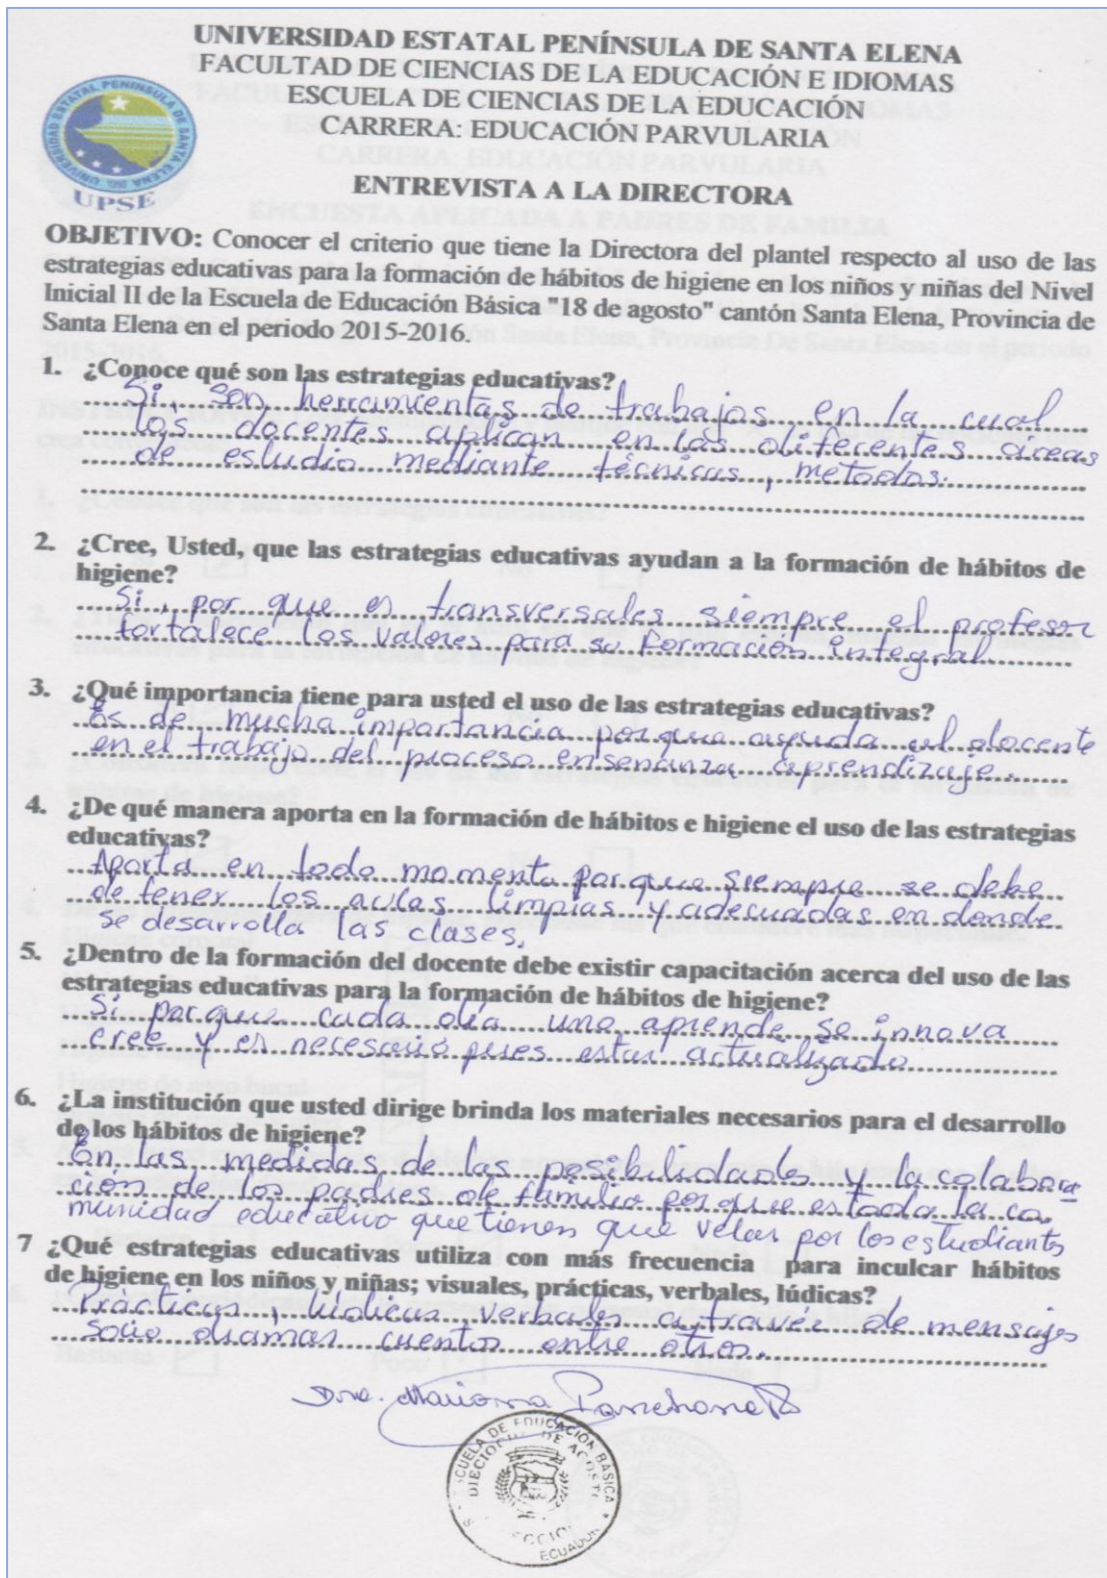 UNIVERSIDAD ESTATAL PENÍNSULA DE SANTA ELENA
FACULTAD DE CIENCIAS DE LA EDUCACIÓN E IDIOMAS
ESCUELA DE CIENCIAS DE LA EDUCACIÓN
CARRERA: EDUCACIÓN PARVULARIA
UPSE
ENTREVISTA A LA DIRECTORA
ENCUESTA APLICADA A PADRES DE FAMILIA
OBJETIVO: Conocer el criterio que tiene la Directora del plantel respecto al uso de las
estrategias educativas para la formación de hábitos de higiene en los niños y niñas del Nivel
Inicial II de la Escuela de Educación Básica "18 de agosto" cantón Santa Elena, Provincia de
Santa Elena en el periodo 2015-2016.
1. ¿Conoce qué son las estrategias educativas?
Si, son herramientas de trabajos en la cual
los docentes aplican en las diferentes áreas
de estudio mediante técnicas, metodos.
2. ¿Cree, Usted, que las estrategias educativas ayudan a la formación de hábitos de
higiene?
Si, por que es transversales siempre el profesor
fortalece los valores para su formación integral.
3. ¿Qué importancia tiene para usted el uso de las estrategias educativas?
Es de mucha importancia porque ayuda al docente
en el trabajo del proceso enseñanza aprendizaje.
4. ¿De qué manera aporta en la formación de hábitos e higiene el uso de las estrategias
educativas?
Aporta en todo momento porque siempre se debe
de tener las aulas limpias y adecuadas en donde
se desarrolla las clases.
5. ¿Dentro de la formación del docente debe existir capacitación acerca del uso de las
estrategias educativas para la formación de hábitos de higiene?
Si porque cada día uno aprende se innova
cree y es necesario pues estar actualizado
6. ¿La institución que usted dirige brinda los materiales necesarios para el desarrollo
de los hábitos de higiene?
En las medidas de las posibilidades y la colabora
ción de los padres de familia porque es toda la co.
munidad educativo que tienen que velar por los estudiantes
7 ¿Qué estrategias educativas utiliza con más frecuencia para inculcar hábitos
de higiene en los niños y niñas; visuales, prácticas, verbales, lúdicas?
Prácticas, lúdicas, verbales a través de mensajes
socio dramas cuentos entre otros.
ESCUELA DE EDUCACIÓN BÁSICA
DIECIOCHO DE AGOSTO
ECUADOR